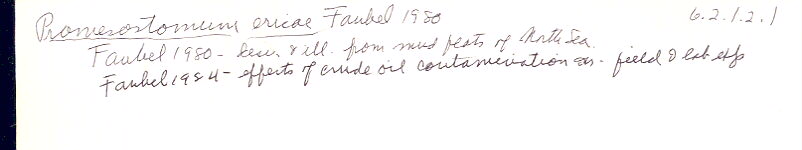 Promesostomum ericae Faubel 1980 6.2.1.2.1
Faubel 1980 - descr. & ill. from mud flats of North Sea.
Faubel 1984 - effects of crude oil contamination on - field & lab exps